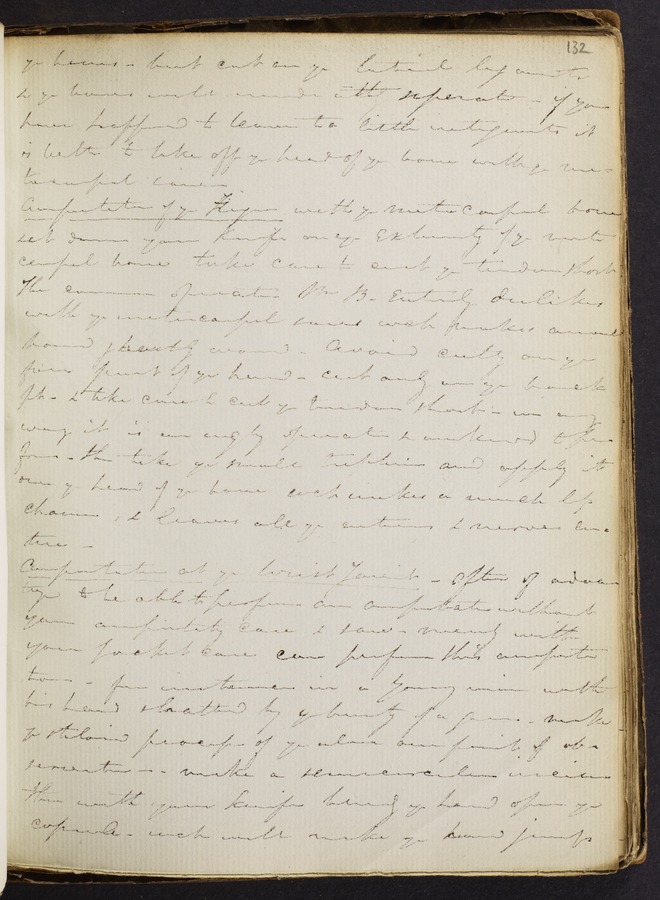 132
ye bones - but cut on ye lateral ligaments
& ye bones will separate - if you
have happened to leave too little integuments it
is better to take off ye head of ye bone with ye me-
tacarpal saw
Amputation of ye Finger with ye metacarpal bone
set down your knife on ye Extremity of ye meta
carpal bone take care to cut ye tendon short
The common operation Mr B. Entirely dislikes
with ye metacarpal saw wch makes
Avoid cutting on ye
fore part of ye hand - cut only on ye back
pt - & take care to cut ye tendon short - in any
way it is an ugly operation & awkward to
take ye small and apply it
over ye head of ye bone wch makes a much less
chasm, & leaves all ye arteries & nerves en-
tire -
Amputation at ye Wrist Joint - often of advan
tage to be able to perform an amputation without
your amputating case & saw - merely with
your pocket case can perform this amputa
tion - for instance in a young man with
his hand shattered by ye bursting of a gun - make
ye styloid process of ye ulna our point of ob-
servation - make a semicircular incision
then with your knife bend ye hand open ye
capsule - wch will make ye hand jump